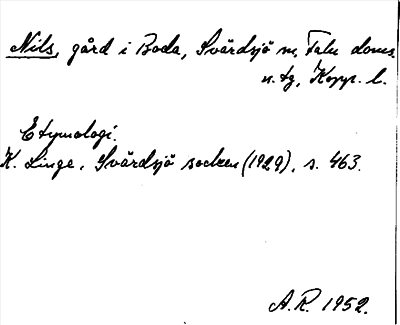 Nils, gård i Boda, Svärdsjö sn, Falu doms.
n. tg, Kopp. l.
Etymologi.
K. Linge, Svärdsjö socken (1929), s. 463.
A. R. 1952.